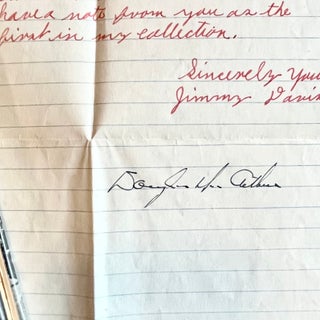 have a note from you as the
first in my collection.
Sincerely You
Jimmy Davis
Douglas MacArthur